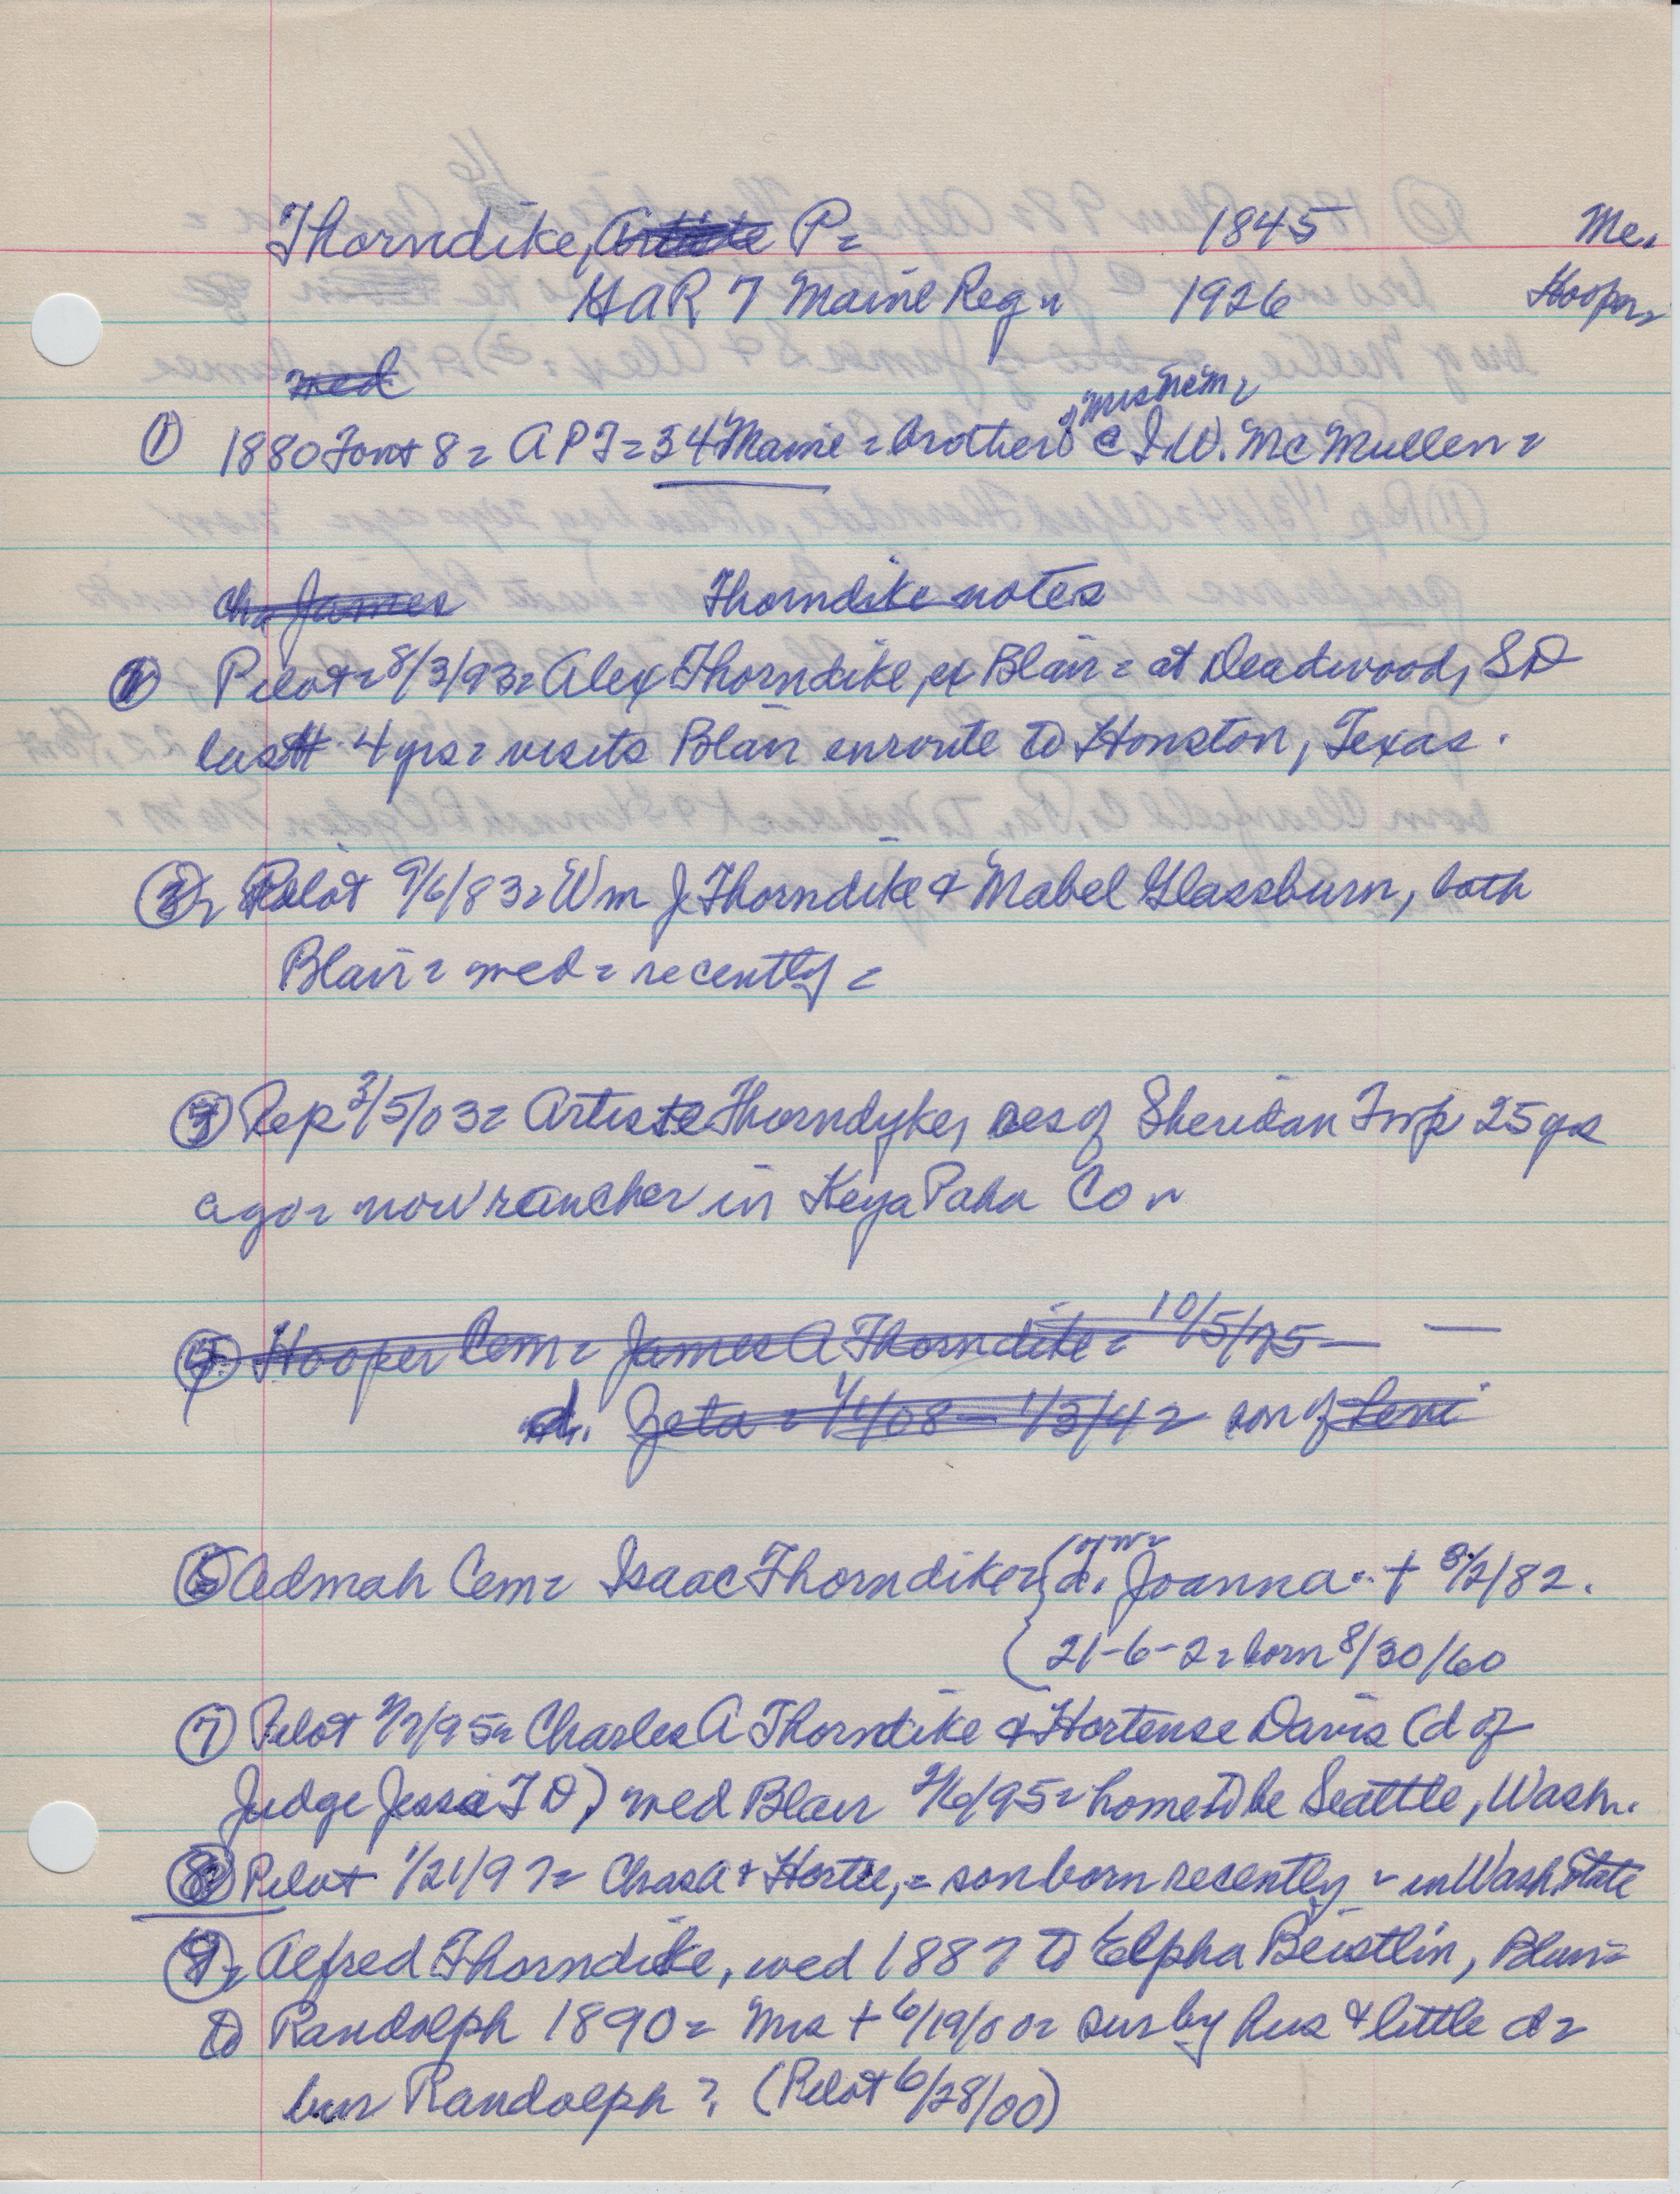 Thorndike, Artiste P= 1845 Me.
GAR 7 Maine Reg= 1926 Hooper=
med
① 1880 Font 8= APT= 34 Maine = brother of Mrs McM= c I.W. McMullen=
ch= James Thorndike notes
Pilot= 8/3/93= Alex Thorndike, ex Blair= at Deadwood, SD
last 4 yrs= visits Blair enroute to Houston, Texas.
Pilot 9/6/83= Wm J. Thorndike & Mabel Glassburn, both
Blair= wed= recently=
Rep 3/5/03= Artiste Thorndyke, res of Sheridan Twp 25 yrs
ago= now rancher in Keya Paha Co=
Hooper Cem= James A Thorndike= 10/5/75— —
d. Zeta= 1/1/08— 1/3/42 son of Levi
⑥ Admah Cem= Isaac Thorndike= d. Joanna + 8/2/82.
21-6-2= born 8/30/60
⑦ Pilot 2/7/95= Charles A Thorndike & Hortense Davis (d of
Judge Jesse T D) wed Blair 2/6/95= home to be Seattle, Wash.
⑧ Pilot 1/21/97= Chas A & Hortie, = son born recently = in Wash. State
⑨ Alfred Thorndike, wed 1887 to Elpha Beistlin, Blair=
to Randolph 1890= Mrs + 6/19/00= sur by hus & little d=
bur Randolph? (Pilot 6/28/00)